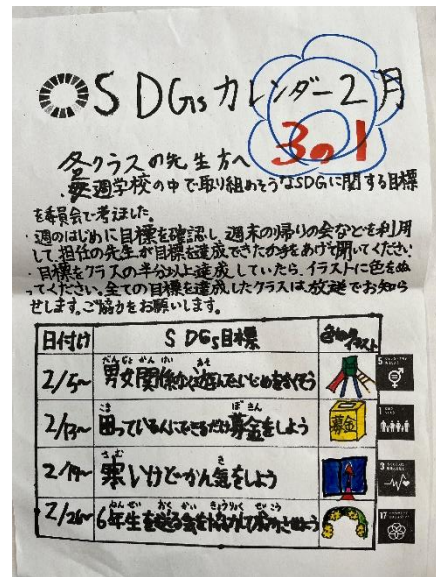 SDGsカレンダー2月
3の1
各クラスの先生方へ
毎週学校の中で取り組めそうなSDGに関する目標
を委員会で考えました。
・週のはじめに目標を確認し、週末の帰りの会などを利用
して、担任の先生が目標を達成できたか手をあげて聞いてください。
・目標をクラスの半分以上達成していたら、イラストに色をぬ
ってください。全ての目標を達成したクラスは放送でお知ら
せします。ご協力をお願いします。
日付け SDGs目標 イラスト
2/5~ 男女関係なく遊んでいじめをなくそう 5
2/13~ 困っている人にできるだけ募金をしよう 募金 1
2/19~ 寒いけどかん気をしよう 3
2/26~ 6年生を送る会を協力して成功させよう 17